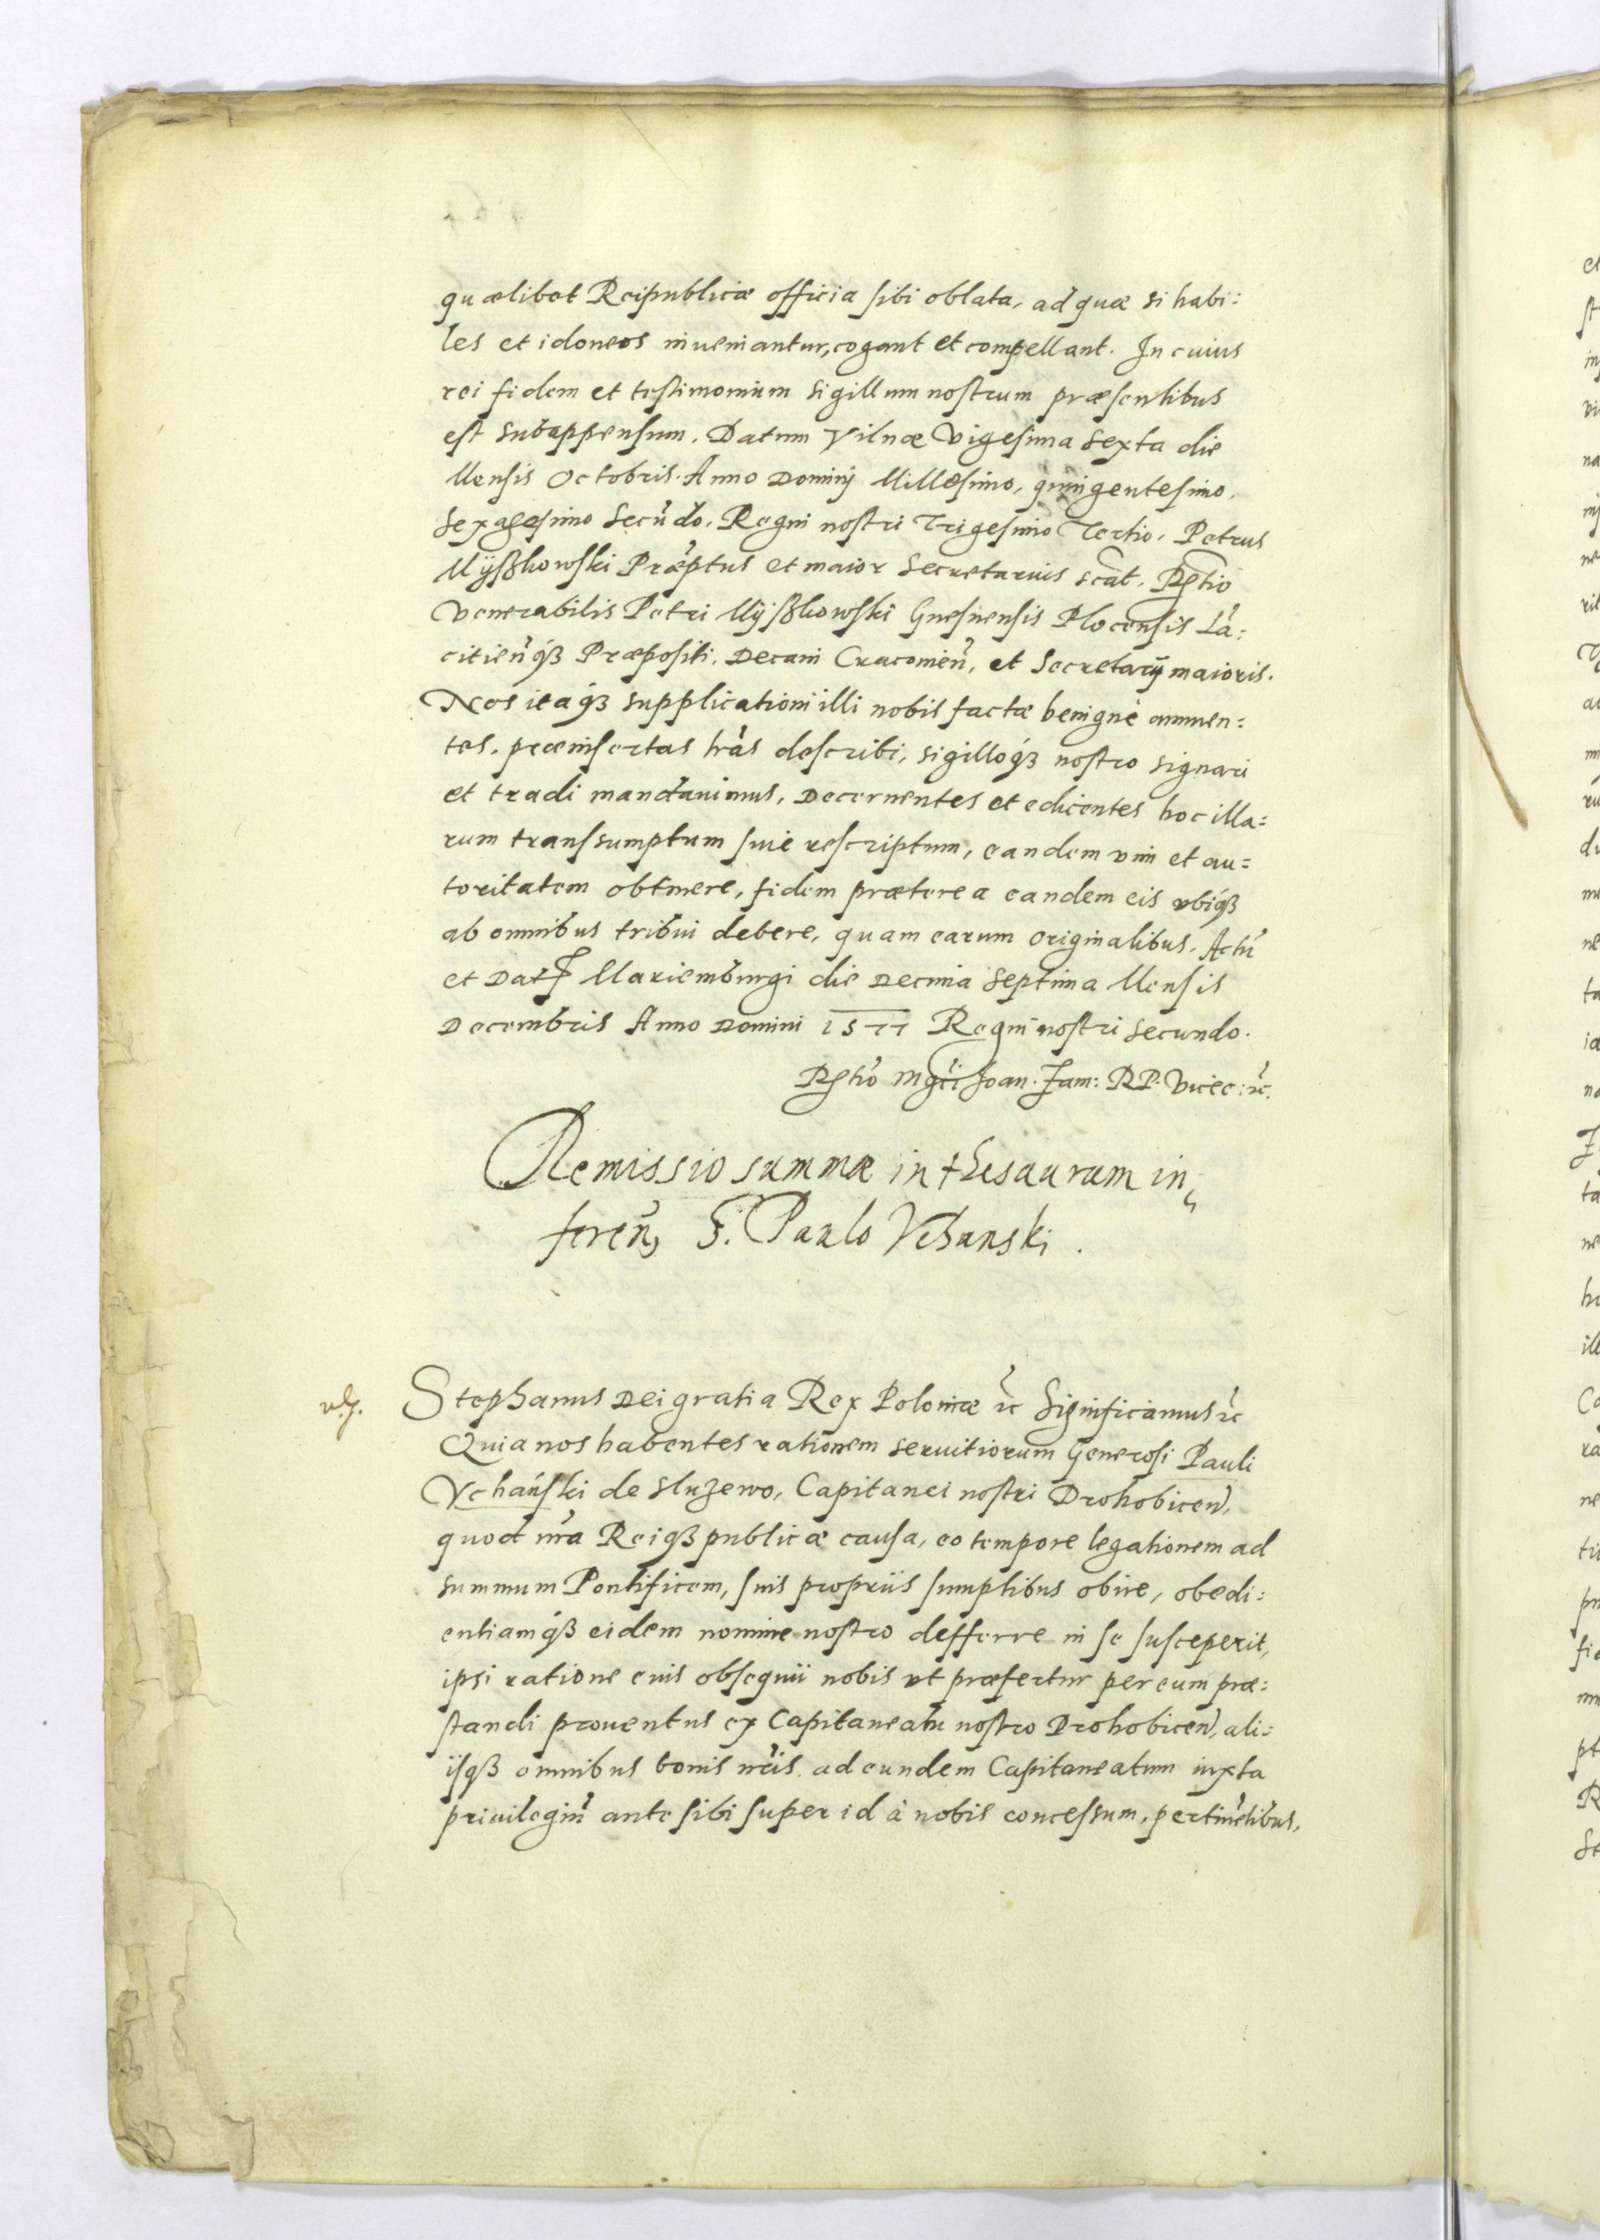 quælibet Reipublicæ officia sibi oblata, ad quæ si habi:
les et idoneos inueniantur, cogant et compellant. In cuius
rei fidem et testimonium sigillum nostrum præsentibus
est subappensum. Datum Vilnæ Vigesima Sexta die
Mensis Octobris. Anno Dominij Millesimo, quingentesimo,
Sexagesimo Secũdo. Regni nostri Trigesimo Tertio. Petrus
Mÿßkowski Præptus et maior Secretarius scãt. Rętio
Venerabilis Petri Mÿßkowski Gnesnensis Plocensis Lã:
citieñq́ꝫ Præpositi, Decani Cracouieñ, et Secretarÿ maioris.
Nos itaq́ꝫ supplicationi illi nobis factæ benignè annuen=
tes, præinsertas lr̃as describi, sigilloq́ꝫ nostro signari
et tradi mandauimus, Decernentes et edicentes hoc illa=
rum transsumptum siue rescriptum, eandem vim et au=
toritatem obtinere, fidem præterea eandem eis vbiq́ꝫ
ab omnibus tribui debere, quam earum originalibus. Actũ
et Dat Mariemburgi die Decima Septima Mensis
Decembris Anno Domini 1577 Regni nostri Secundo.
Rętio Mgci Joan. Zam: RP. Vicec: ꝛc.
Remissio summæ in thesaurum in,
fereñ, G. Paulo Vchanski.
Stephanus Dei gratia Rex Poloniæ ꝛc Significamus ꝛc
Quia nos habentes rationem seruitiorum Generosi Pauli
Vchański de Sluzewo, Capitanei nostri Drohobiceñ,
quod nr̃a Reiq́ꝫ publicæ causa, eo tempore legationem ad
summum Pontificem, suis propriis sumptibus obire, obedi:
entiamq́ꝫ eidem nomine nostro defferre in se susceperit,
ipsi ratione euis obsequii nobis vt præfertur per eum præ:
standi prouentus ex Capitaneatu nostro Drohobiceñ, ali=
isq́ꝫ omnibus bonis nr̃is ad eundem Capitaneatum iuxta
priuilegiũ ante sibi super id à nobis concessum, pertinẽtibus,